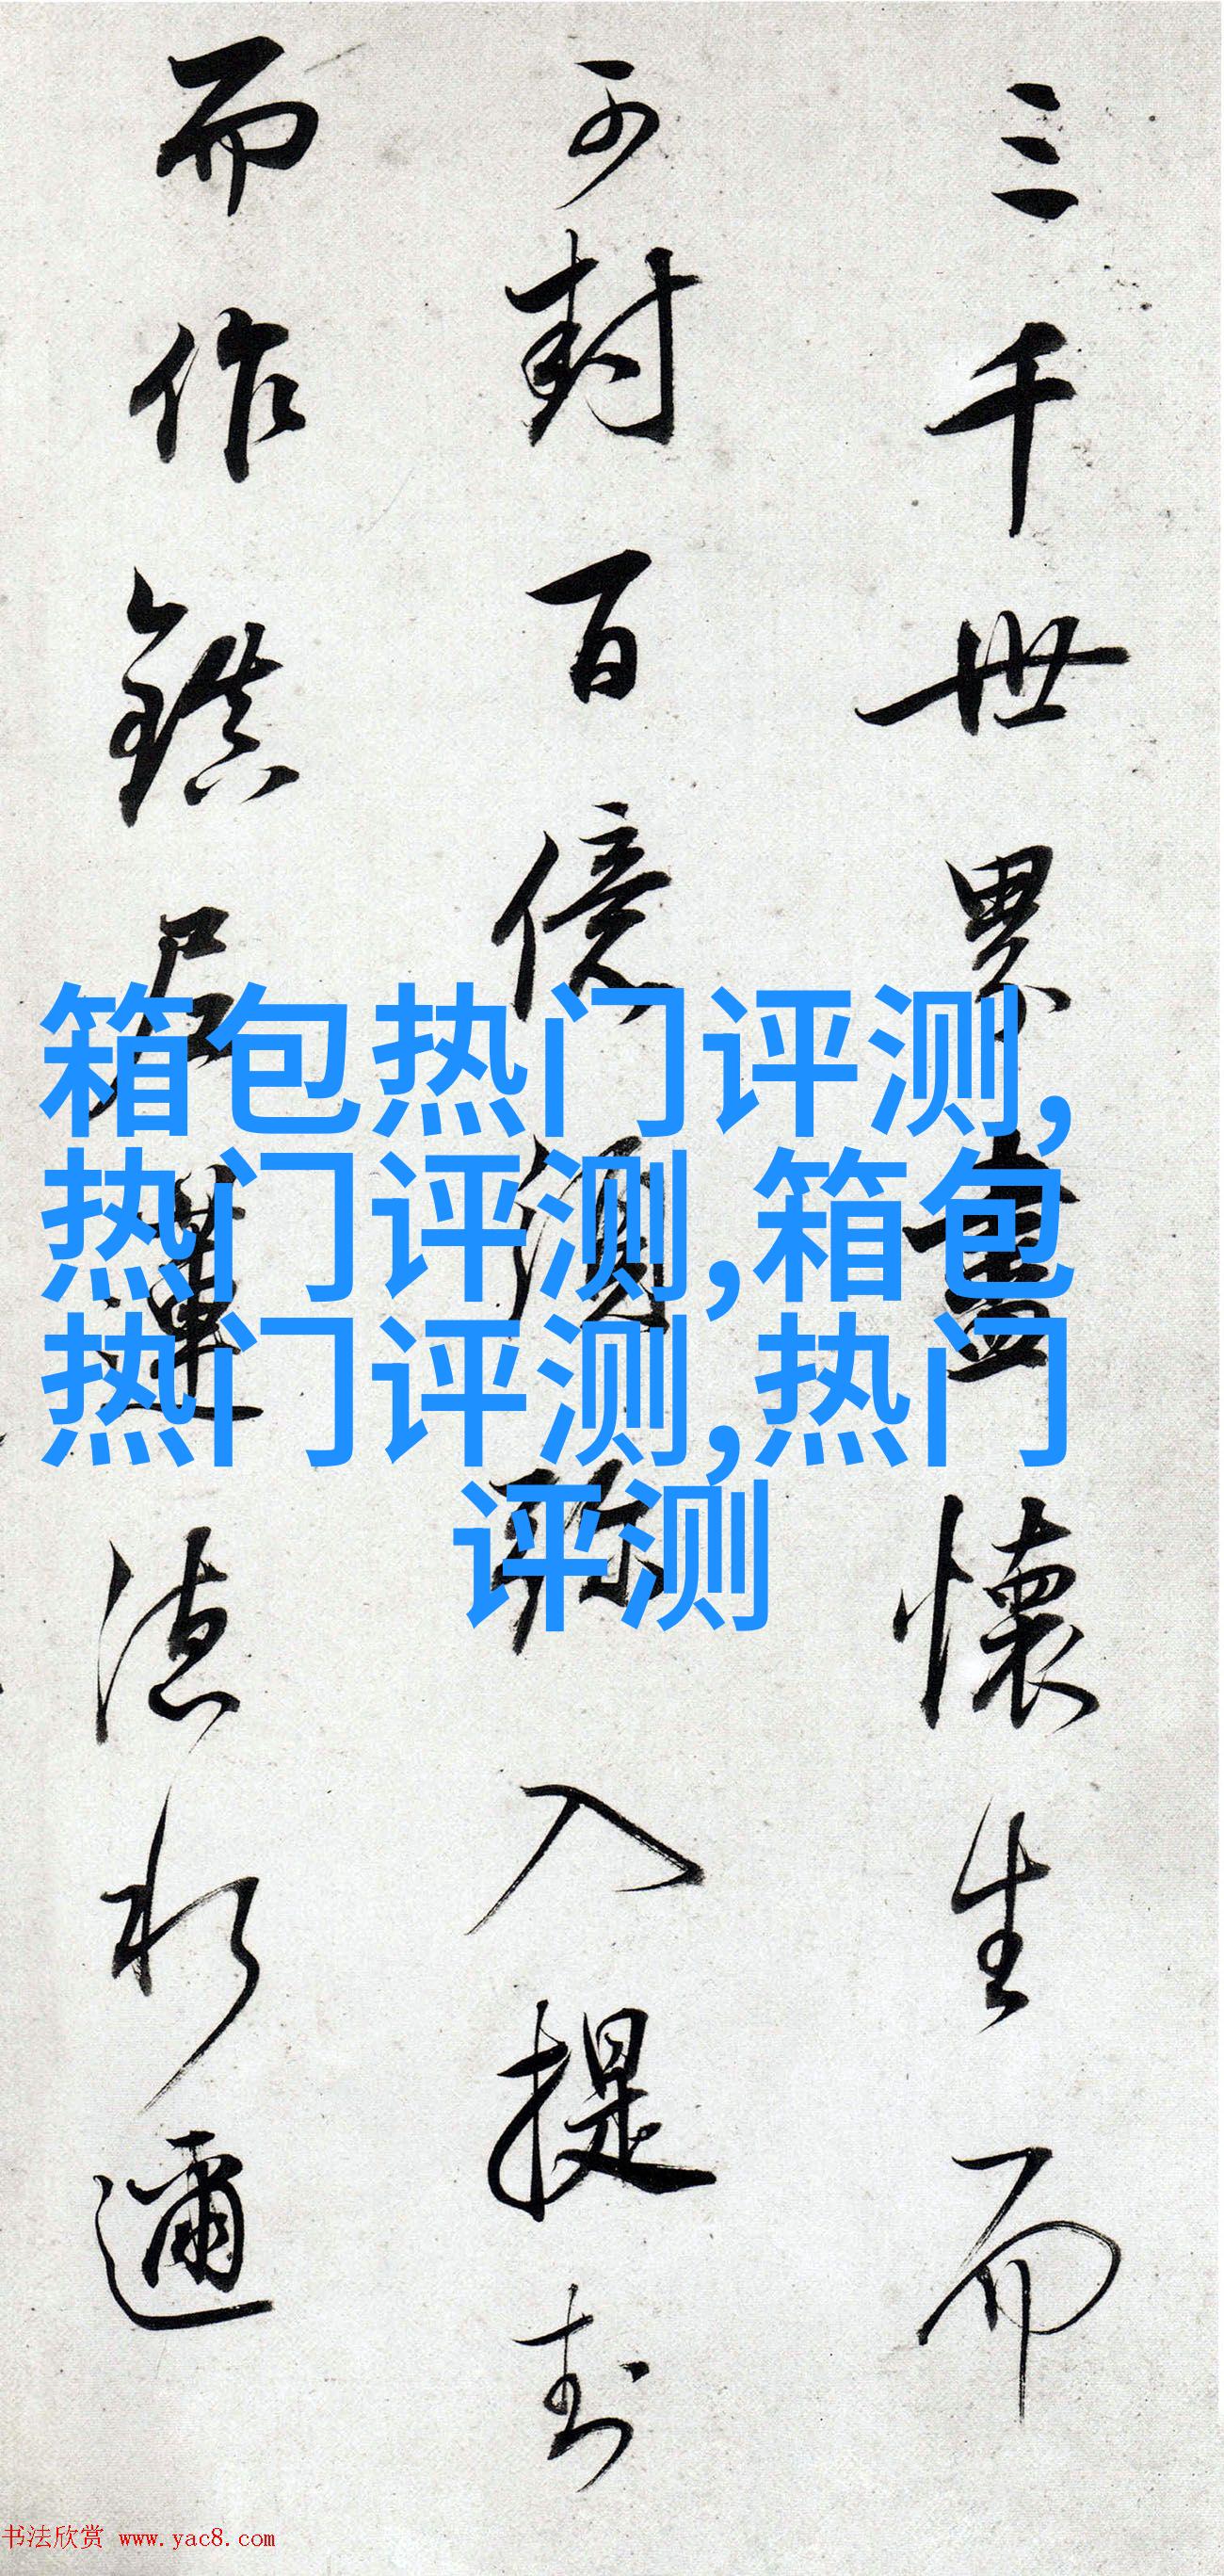 三千世界盡懷生而
可封百億須弥入提封
而作鎮居
德水邇
箱包热门评测,
热门评测,箱包
热门评测,热门
评测
书法欣赏 www.yac8.com